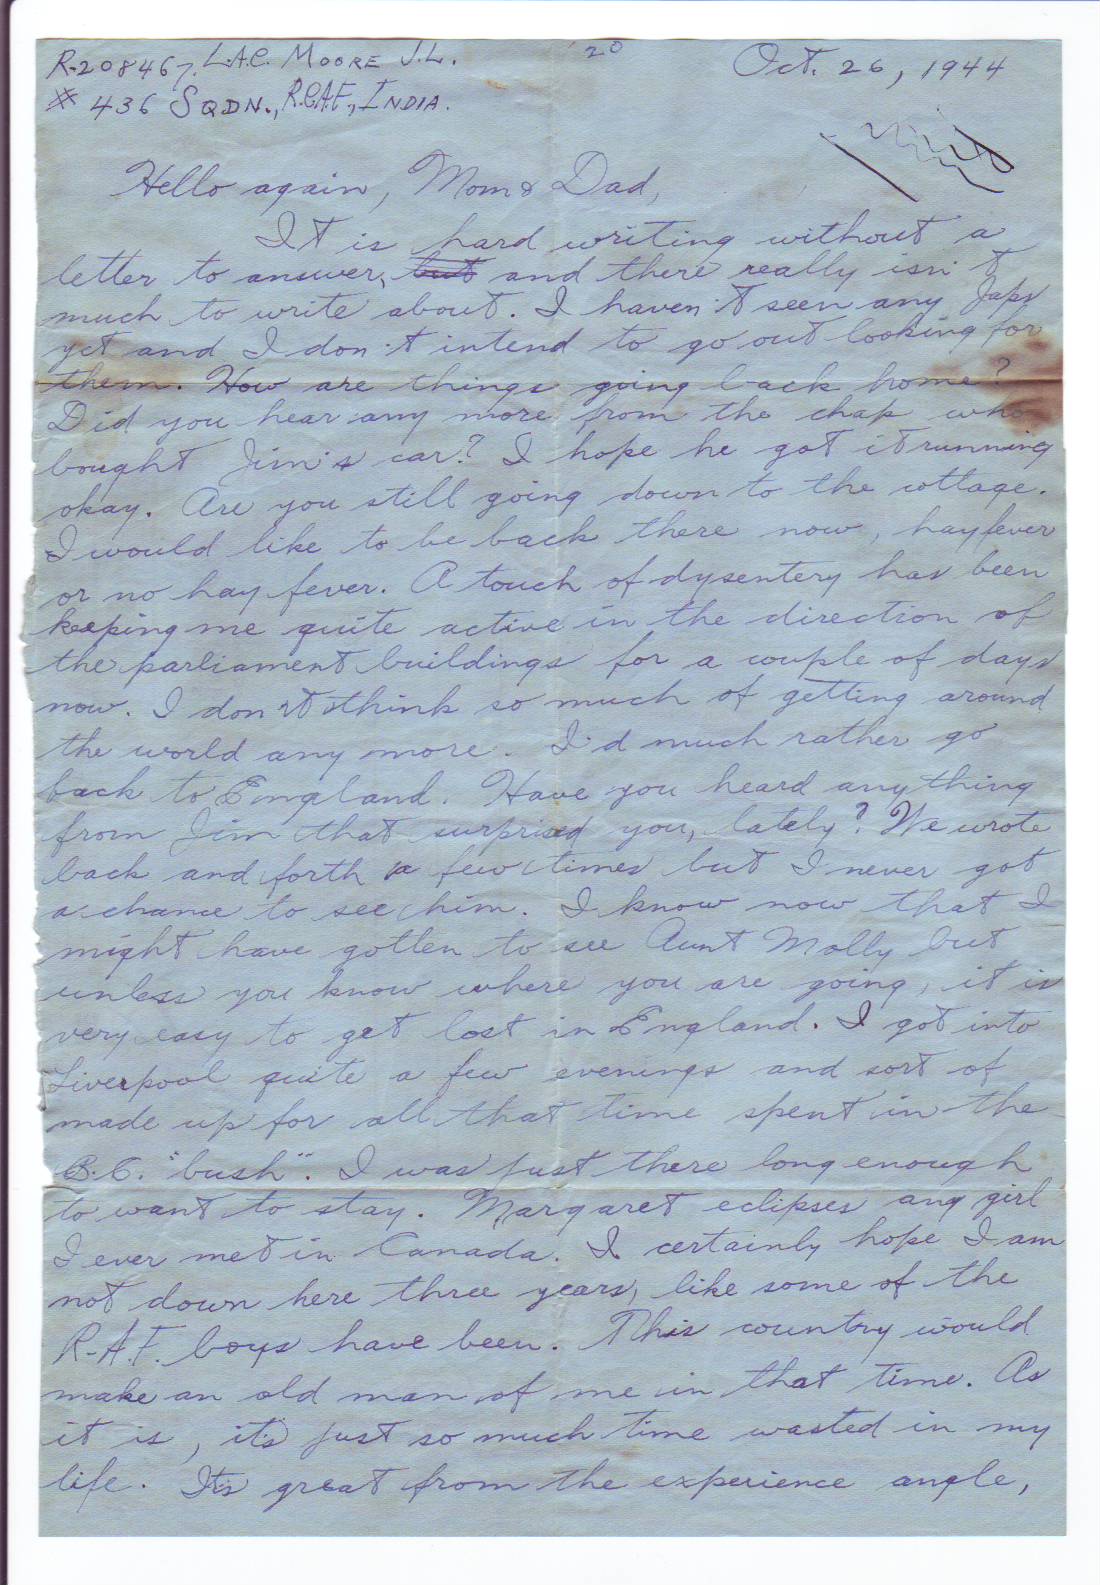 R-208467. L.A.C. MOORE J.L.
20
Oct. 26, 1944
# 436 SQDN., R.C.A.F., INDIA.
Hello again, Mom & Dad,
It is hard writing without a
letter to answer, but and there really isn't
much to write about. I haven't seen any Japs
yet and I don't intend to go out looking for
them. How are things going back home?
Did you hear any more from the chap who
bought Jim's car? I hope he got it running
okay. Are you still going down to the cottage.
I would like to be back there now, hay fever
or no hay fever. A touch of dysentery has been
keeping me quite active in the direction of
the parliament buildings for a couple of days
now. I don't think so much of getting around
the world any more. I'd much rather go
back to England. Have you heard anything
from Jim that surprised you, lately? We wrote
back and forth a few times but I never got
a chance to see him. I know now that I
might have gotten to see Aunt Molly but
unless you know where you are going, it is
very easy to get lost in England. I got into
Liverpool quite a few evenings and sort of
made up for all that time spent in the
B.C. "bush". I was just there long enough
to want to stay. Margaret eclipses any girl
I ever met in Canada. I certainly hope I am
not down here three years, like some of the
R.A.F. boys have been. This country would
make an old man of me in that time. As
it is, it's just so much time wasted in my
life. It's great from the experience angle,